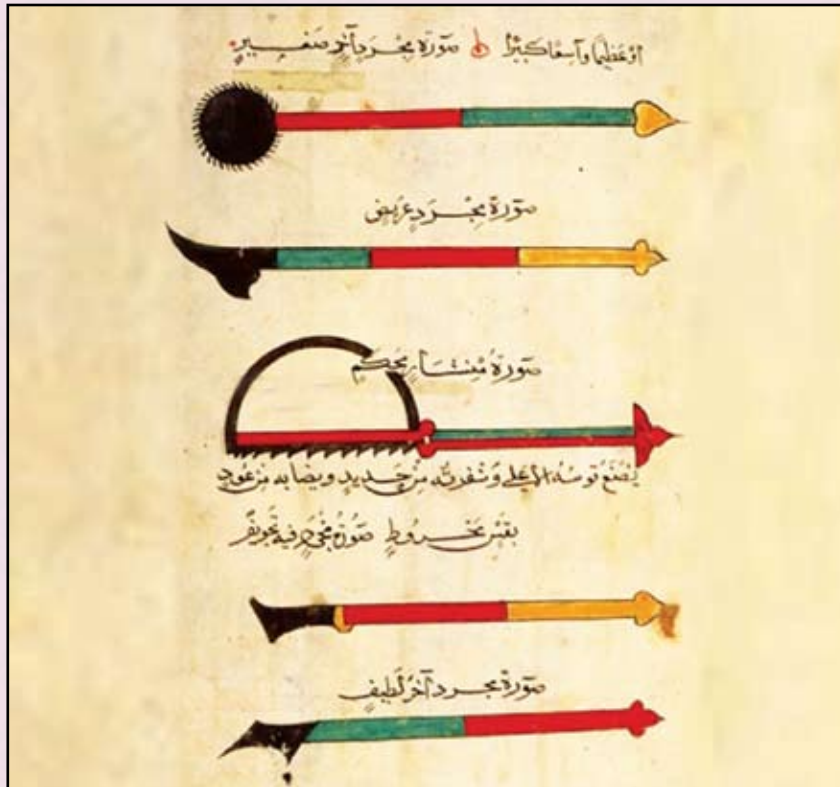 أو عظيما وآسفا كبيرا صورة مجرد آخر صغير
صورة مجرد عريض
صورة منشار محكم
يصنع قوسه الأعلى وشفرته من حديد ونصابه من عود
بقس مخروط صورة مجرد فيه تجويف
صورة مجرد آخر لطيف